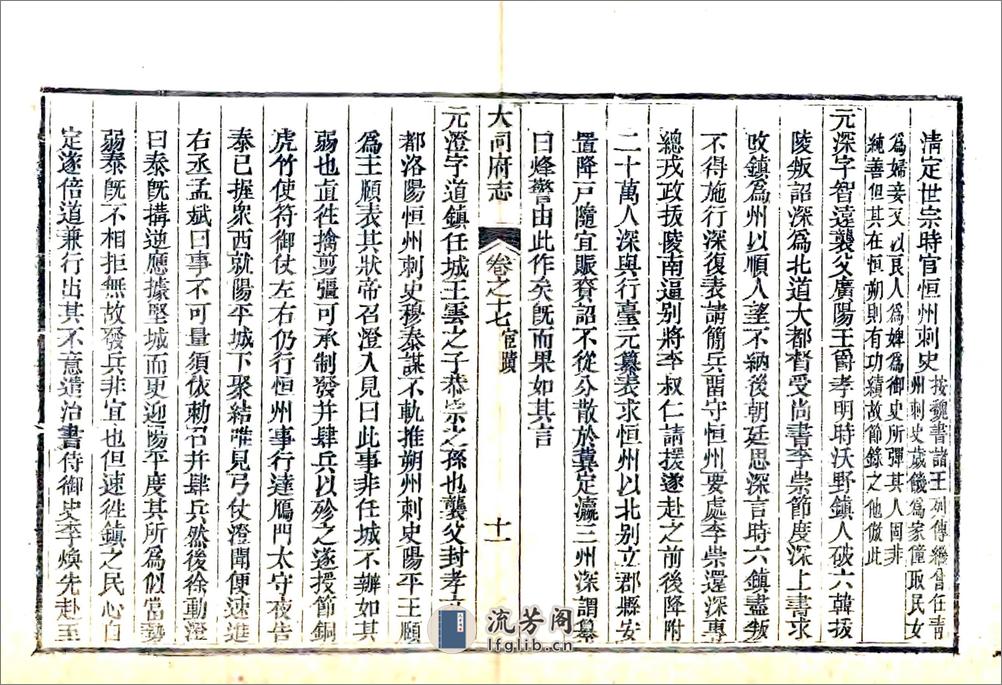 清定世宗時官恒州刺史按魏書諸王列傳繼曾任青州刺史歲饑爲家僮取民女
爲婦妾又以良人爲婢爲御史所彈其人固非純善但其在恒朔則有功績故節錄之他倣此
元深字智遠襲父廣陽王爵孝明時沃野鎮人破六韓拔
陵叛詔深爲北道大都督受尚書李崇節度深上書求
改鎮爲州以順人望不納後朝廷思深言時六鎮盡叛
不得施行深復表請簡兵畱守恒州要處李崇還深專
總戎政拔陵南逼别將李叔仁請援遂赴之前後降附
二十萬人深與行臺元纂表求恒州以北别立郡縣安
置降戸隨宜賑賚詔不從分散於冀定瀛三州深謂纂
曰烽警由此作矣旣而果如其言
大同府志 卷之七 宦蹟 十一
元澄字道鎮任城王雲之子恭宗之孫也襲父封孝文
都洛陽恒州刺史穆泰謀不軌推朔州刺史陽平王頤
爲王頤表其狀帝召澄入見曰此事非任城不辦如其
弱也直往擒剪彊可承制發并肆兵以殄之遂授節銅
虎竹使符御仗左右仍行恒州事行達鴈門太守夜告
泰已握衆西就陽平城下聚結唯見弓仗澄聞便速進
右丞孟斌曰事不可量須依勅召并肆兵然後徐動澄
曰泰旣搆逆應據堅城而更迎陽平度其所爲似當勢
弱泰旣不相拒無故發兵非宜也但速往鎮之民心自
定遂倍道兼行出其不意遣治書侍御史李煥先赴至
流芳阁
lfglib.cn